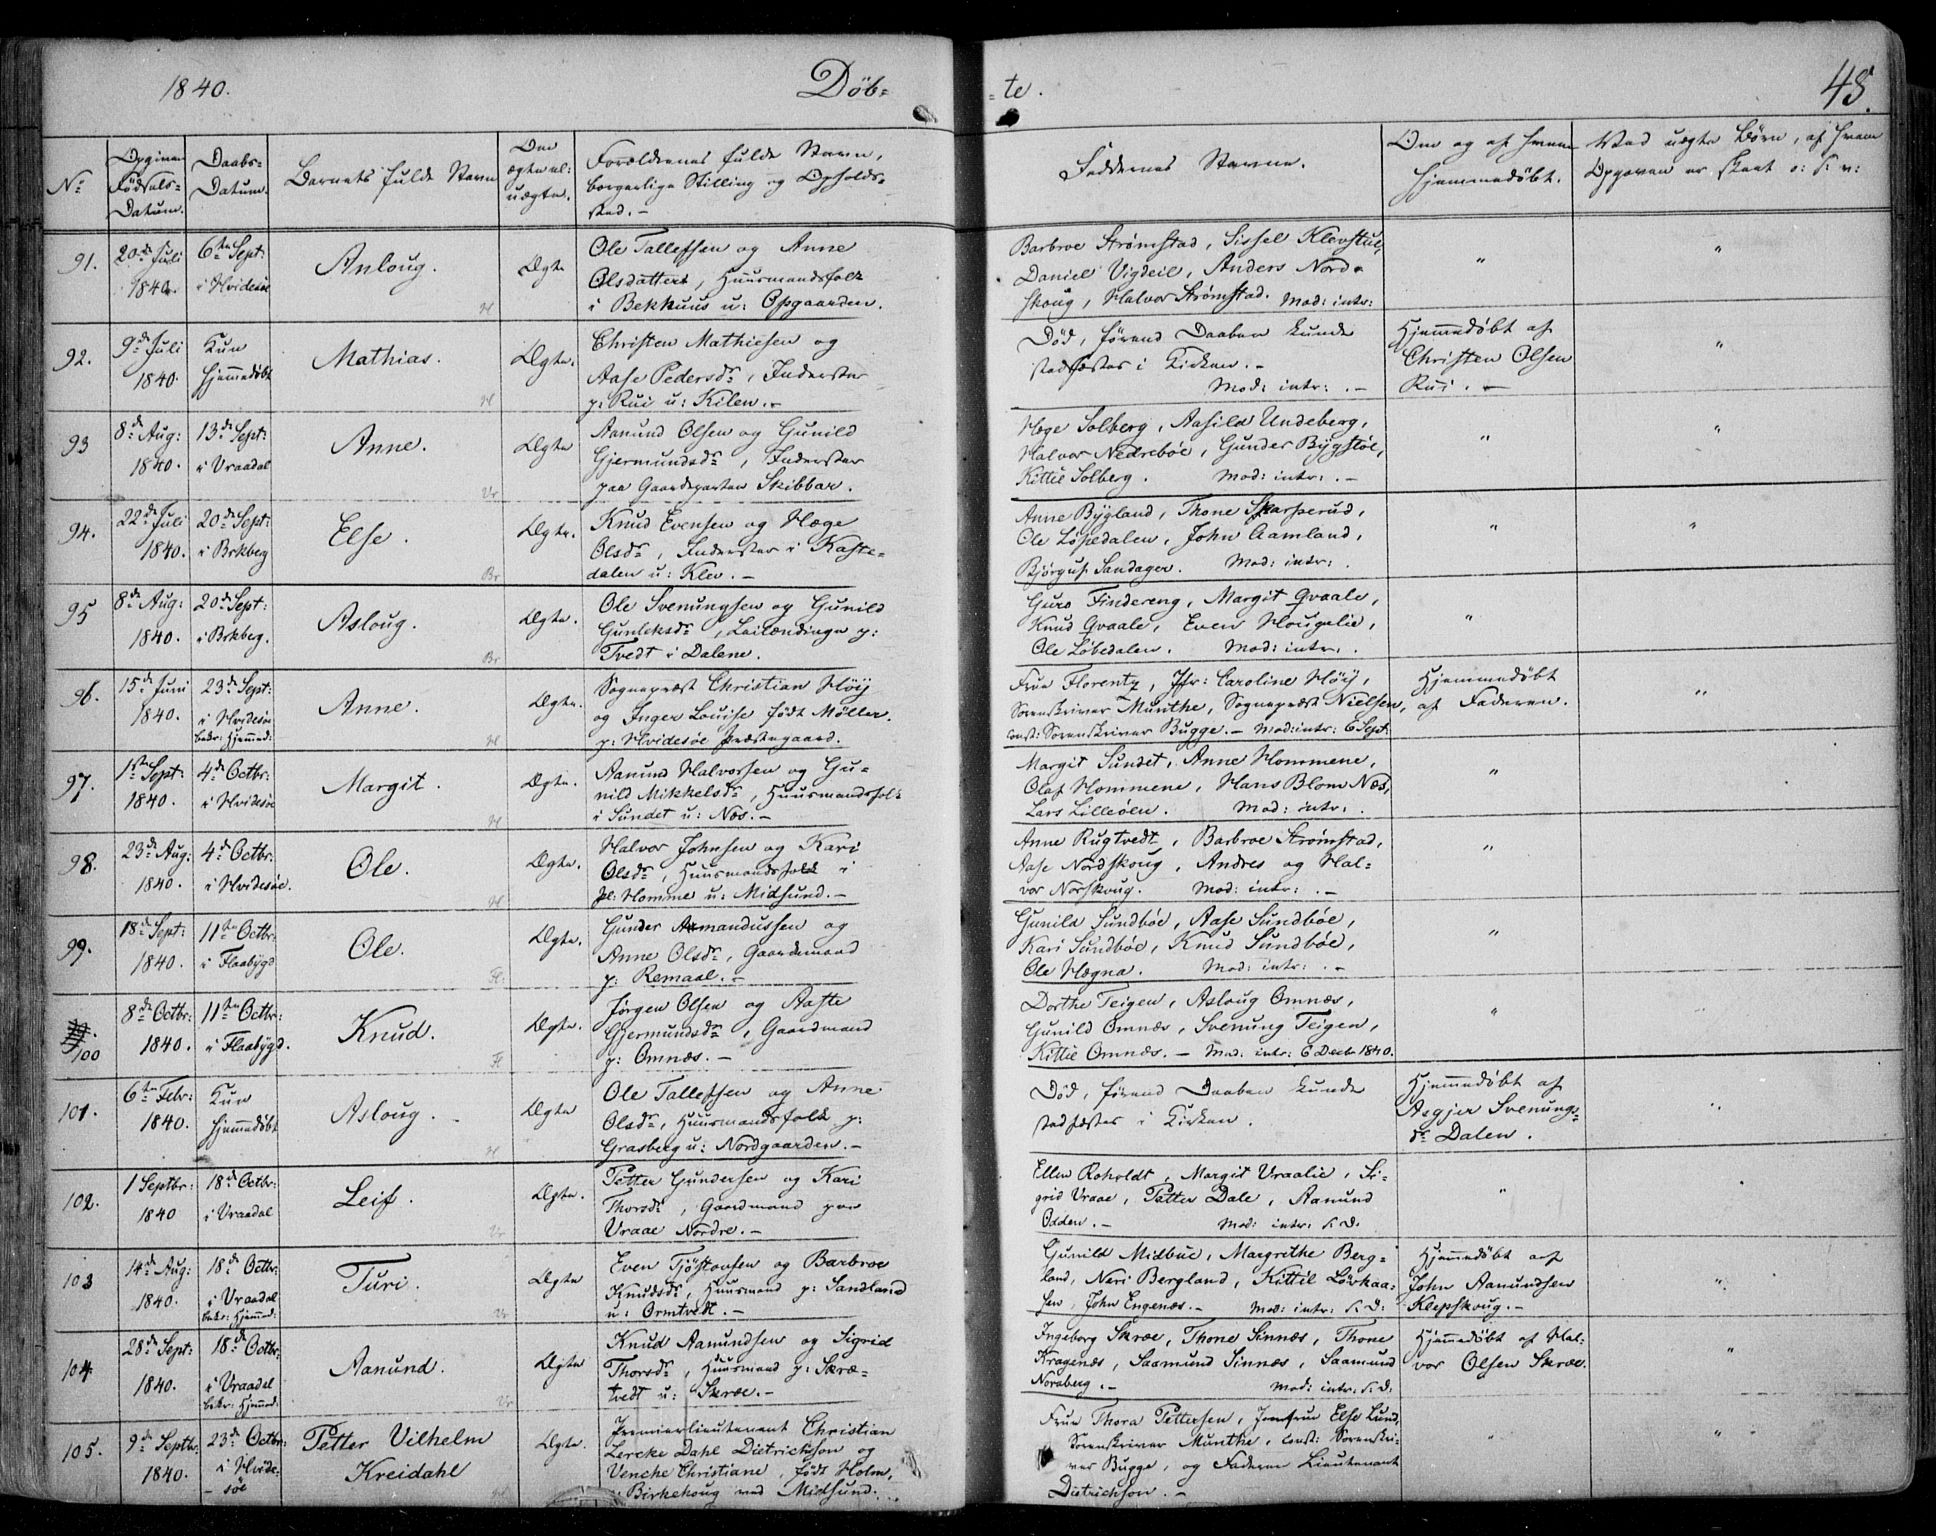 1840. Döb= =te. 48.
No
Opgiven Fødsels= Datum.
Daabs= Datum.
Barnets fulde Navn
Om ægte el: uægte.
Forældrenes fulde Navn,
borgerlige Stilling og Opholds=
sted. –
Faddernes Navne.
Om og af hvem
hjemmedøbt.
Ved uægte Børn, af hvem
Opgaven er skeet o: s: v:
91. 20de Juli 1840. 6te Sept: i Hvidesøe Anloug. H Ægte
Ole Tallefsen og Anne
Olsdatter, Huusmandsfolk
i Bekhuus u: Opgaarden.
Barbroe Strømstad, Sissel Klevstul,
Daniel Vigdeil, Anders Nord=
skoug, Halvor Strømstad. Mod: intr:
" "
92. 9de Juli 1840. Kun hjemmedøbt Mathias. H Ægte.
Christen Mathiesen og
Aase Pedersdr, Inderster
p: Rui u: Kilen. –
Død, førend Daaben kunde
stadfæstes i Kirken. –
Mod: intr: . –
Hjemmedøbt af
Christen Olsen
Rui. –
"
93 8de Aug: 1840. 13de Sept: i Vraadal Anne. Vr Ægte
Aanund Olsen og Gunild
Gjermundsdr, Inderster
paa Gaardeparten Skibbar.
Hæge Solberg, Aasild Undeberg,
Halvor Nedrebøe, Gunder Bygstøl,
Kittil Solberg. Mod: intr: . –
" "
94. 22de Juli 1840. 20de Sept: i Brkberg Else. Br Ægte.
Knud Evensen og Hæge
Olsdr, Inderster i Kaste=
dalen u: Klev. –
Anne Bygland, Thone Skarperud,
Ole Løpedalen, John Aamland,
Bjørguf Sandager. Mod: intr: .
" "
95 8de Aug: 1840. 20de Sept: i Brkberg. Asloug. Br Ægte.
Ole Svenungsen og Gunild
Gunleksdr, Leilændinge p:
Tvedt i Dalene.
Guro Findereng, Margit Qvaale,
Knud Qvaale, Even Hougelie,
Ole Løbedalen. Mod: intr: .
"
96. 15de Juni 1840. 23de Sept: i Hvidesøe bekr: hjemmed: Anne. H Ægte.
Sognepræst Christian Höÿ
og Inger Louise født Møller.
p: Hvidesøe Præstegaard.
Frue Florentz, Jfr: Caroline Höÿ,
Sorenskriver Munthe, Sognepræst Nielsen,
const: Sorenskriver Bugge. – Mod: intr: 6 Sept.
Hjemmedøbt
af Faderen.
"
97. 1ste Sept: 1840. 4de Octbr: i Hvidesøe Margit. H Ægte.
Aanund Halvorsen og Gu=
nild Mikkelsdr, Huusmandsfolk
i Sundet u: Næs. –
Margit Sundet, Anne Hommene,
Olaf Hommene, Hans Blom Næs,
Lars Lilleøen. Mod: intr: .
"
98. 23de Aug: 1840. 4de Octbr: i Hvidesøe. Ole. H Ægte.
Halvor Johnsen og Kari
Olsdr, Huusmandsfolk i
pl: Homme u: Midsund. –
Anne Rugtvedt, Barbroe Strømstad,
Aase Nordskoug, Andres og Hal=
vor Norskoug. Mod: intr: . –
"
99. 18de Sept: 1840. 11te Octbr: i Flaabygd Ole. Fl. Ægte.
Gunder Armandussen og
Anne Olsdr, Gaardmand
p: Remaal. –
Gunild Sundbøe, Aase Sundbøe,
Kari Sundbøe, Knud Sundbøe,
Ole Hægna. Mod: intr: . –
"
100 8de Octbr: 1840. 11te Octbr: i Flaabygd. Knud. Fl Ægte.
Jørgen Olsen og Aaste
Gjermundsdr, Gaardmand
p: Omnæs. –
Dorthe Teigen, Asloug Omnæs,
Gunild Omnæs, Svenung Teigen,
Kittil Omnæs. – Mod: intr: 6 Decbr 1840.
"
101. 6te Febr: 1840. Kun hjemmedøbt Asloug. H Ægte
Ole Tallefsen og Anne
Olsdr, Huusmandsfolk p:
Grasberg u: Nordgaarden. –
Død, førend Daaben kunde
stadfæstes i Kirken.
Hjemmedøbt af
Aegjer Svenungs=
dr Dalen.
"
102. 1 Septbr: 1840 18de Octbr: i Vraadal Leif. Vr Ægte.
Petter Gundersen og Kari
Thorsdr, Gaardmand paa
Vraae Nordre. –
Ellen Roholdt, Margit Vraalie, Si=
grid Vraae, Petter Dale, Aanund
Odden. – Mod: intr: s. D.
"
103 14de Aug: 1840. 18de Octbr: i Vraadal bekr: hjemmed: Turi. Vr Ægte
Even Tjøstovsen og Barbroe
Knudsdr, Huusmand p: Sandland
u: Ormtvedt. –
Gunild Midbue, Margrethe Berg=
land, Neri Bergland, Kittil Løvkaa=
sen, John Engenæs. – Mod: intr: s: D:
Hjemmedøbt af
John Aanundsen
Klepskoug. –
"
104 28de Sept: 1840. 18de Octbr: i Vraadal bekr: hjemmed: Aanund. Vr Ægte
Knud Aanundsen og Sigrid
Thorsdr, Huusmand p: Skræ=
tvedt u: Skræe. –
Ingeborg Skræe, Thone Sinnæs, Thone
Kragenæs, Saamund Sinnæs, Saamund
Noraberg. – Mod: intr: s. D:
Hjemmedøbt af Hal=
vor Olsen Skræe.
"
105. 9de Septbr. 1840. 23de Octbr: i Hvide= søe Petter Vilhelm
Kreidahl H Ægte.
Premierlieutenant Christian
Lercke Dahl Dietrichson og
Venche Christiane, født Holm,
Birkehoug ved Midsund.
Frue Thora Pettersen, Jomfrue Else Lund,
Sorenskriver Munthe, const: Sorenskri=
ver Bugge, og Faderen Lieutenant
Dietrichson. –
" "